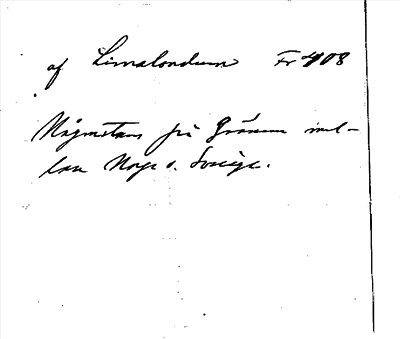 af Limalondum Fr 408
Någonstans på Gränsen mel-
lan Norge o. Sverige.